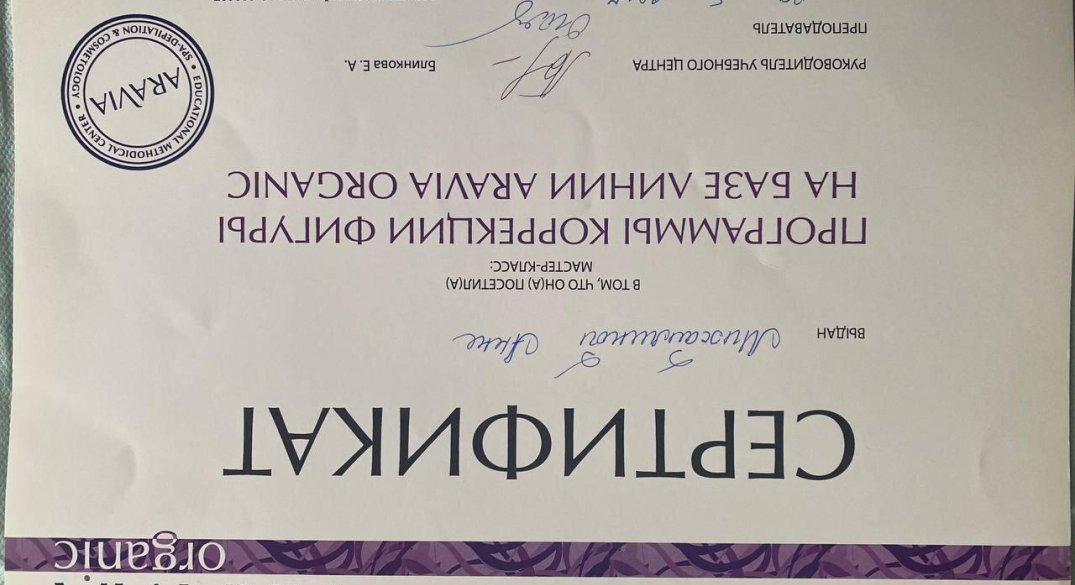 organic
СЕРТИФИКАТ
ВЫДАН Михайлиной Анне
В ТОМ, ЧТО ОН(А) ПОСЕТИЛ(А)
МАСТЕР-КЛАСС:
ПРОГРАММЫ КОРРЕКЦИИ ФИГУРЫ
НА БАЗЕ ЛИНИИ ARAVIA ORGANIC
РУКОВОДИТЕЛЬ УЧЕБНОГО ЦЕНТРА Блинкова Е. А.
ПРЕПОДАВАТЕЛЬ
EDUCATIONAL METHODICAL CENTER • SPA-DEPILATION & COSMETOLOGY •
ARAVIA